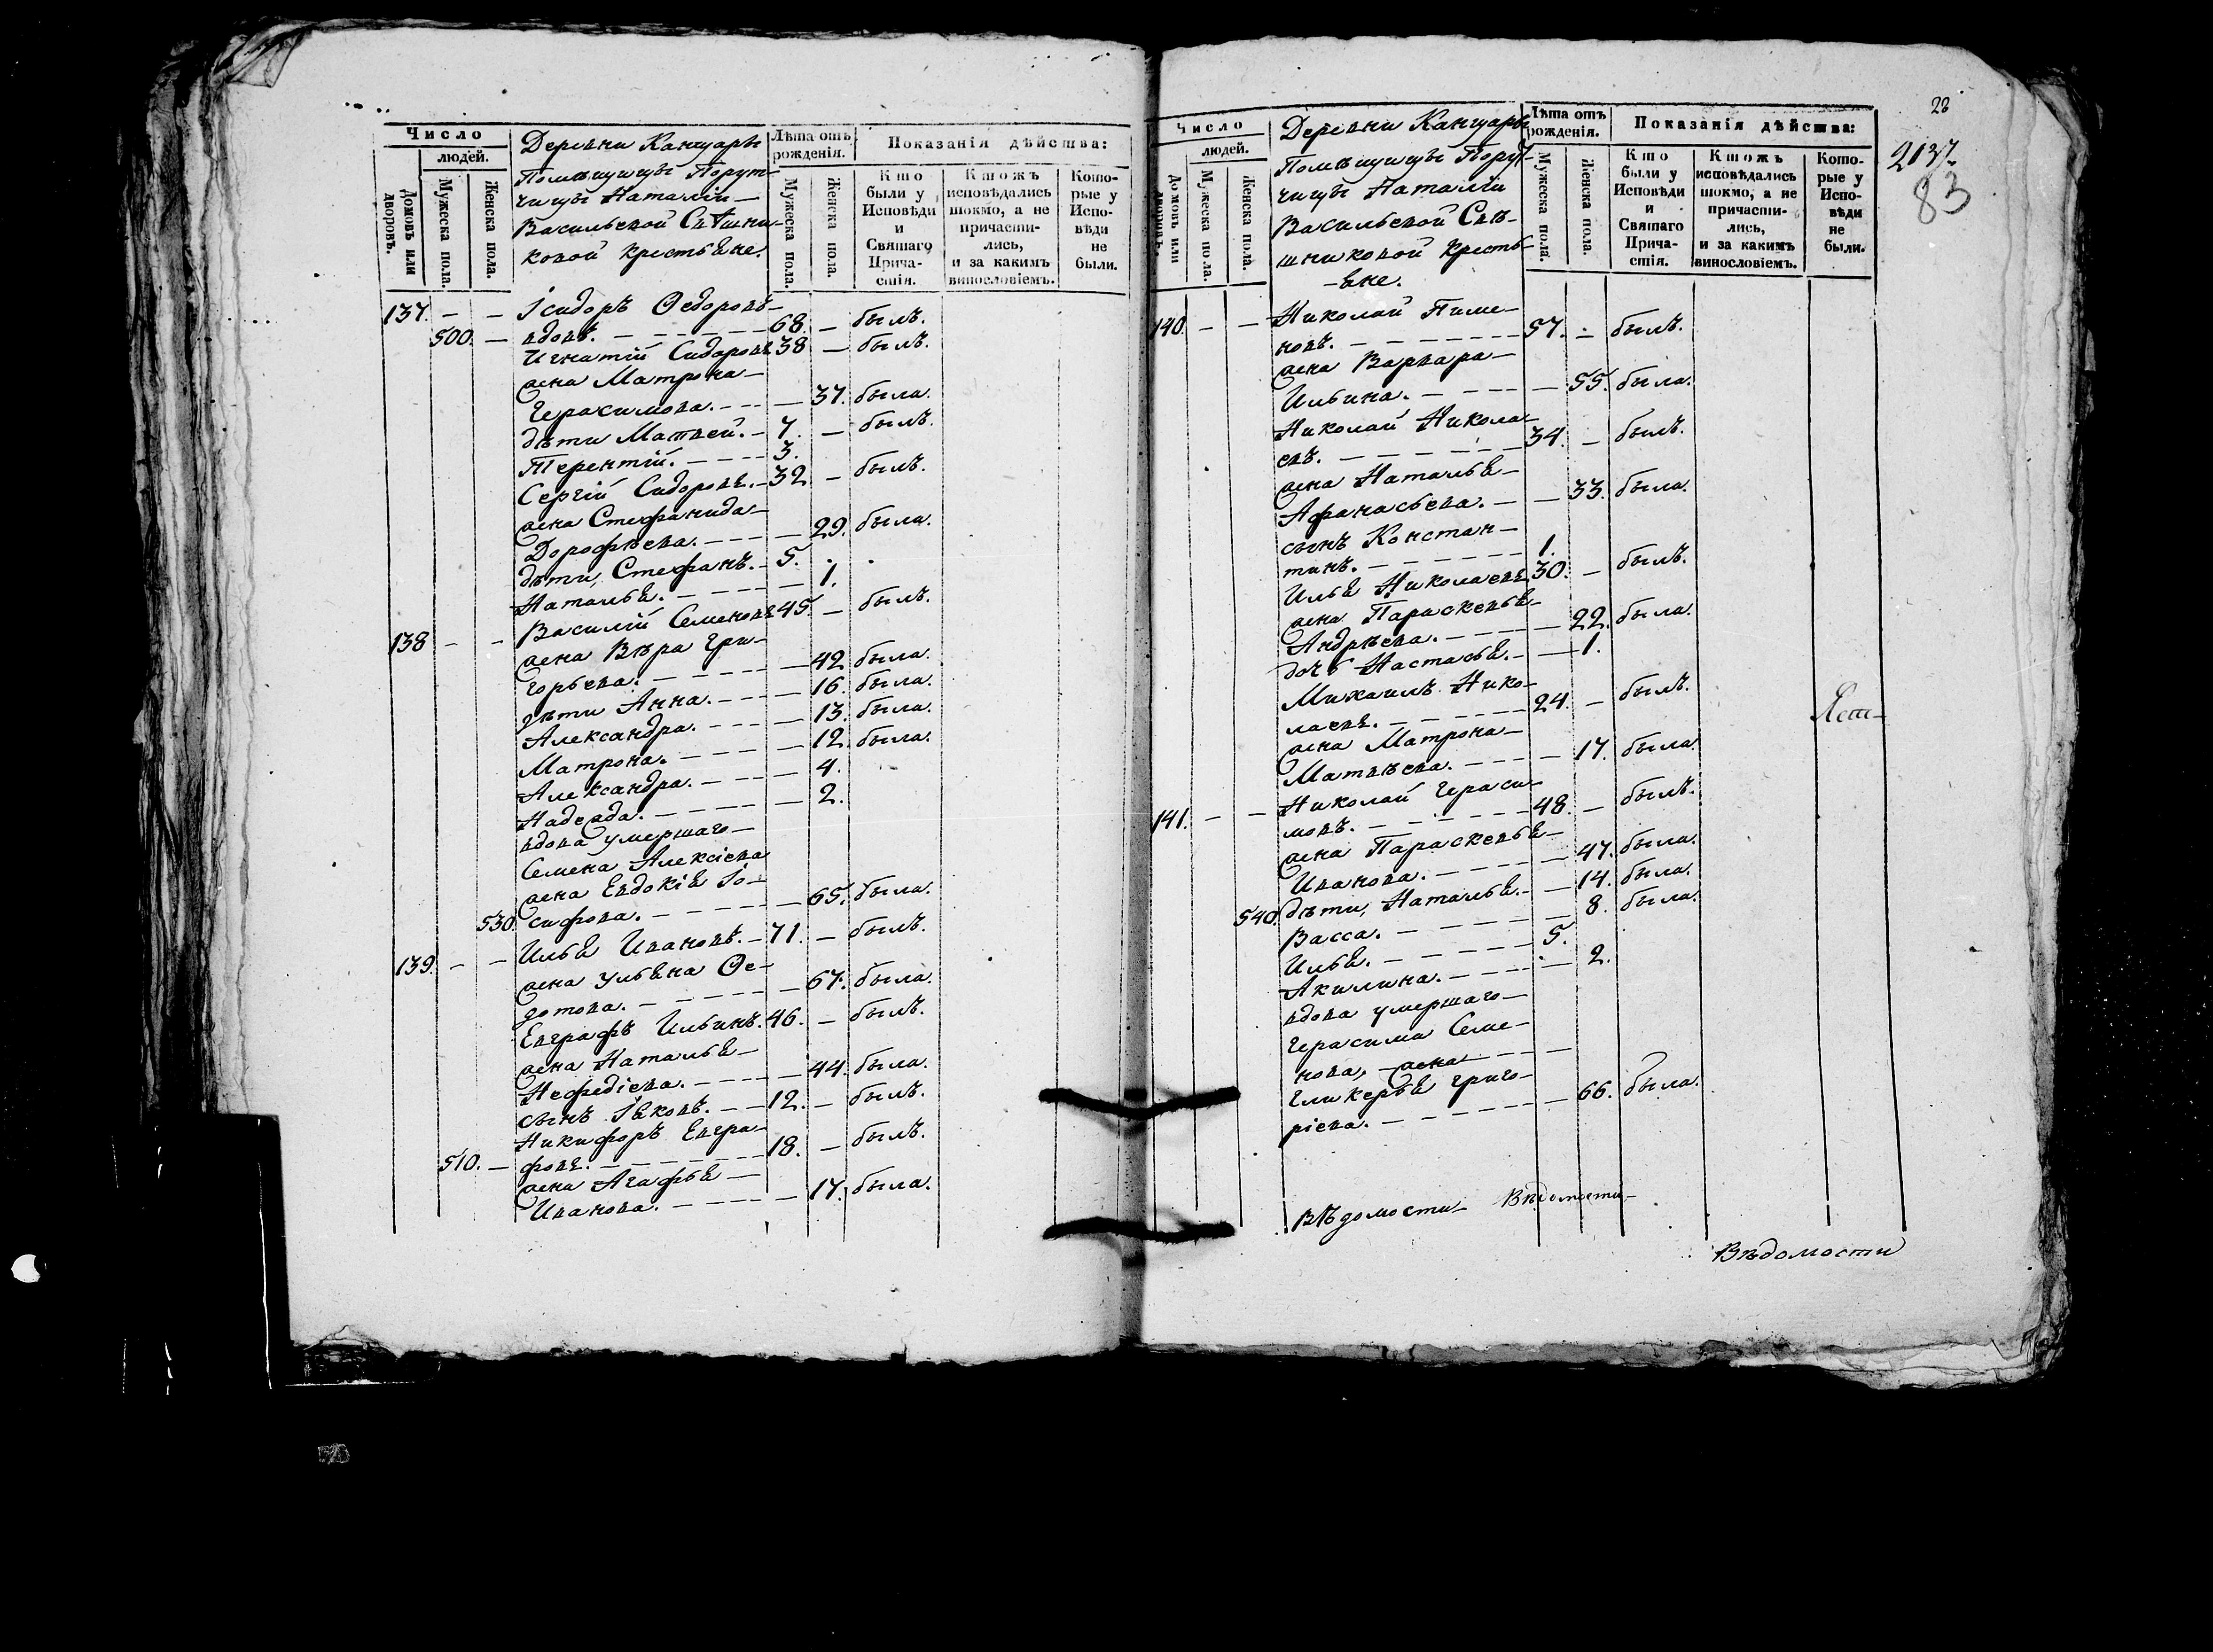 Число
людей.
Домовъ или дворовъ.
Мужеска пола.
Женска пола.
Деревни Канцары
Помѣщицы Порут-
чицы Наталіи
Васильевой Свѣшни-
ковой крестьяне.
Лѣта отъ рожденія.
Мужеска пола.
Женска пола.
Показанія дѣйства:
Кто были у Исповѣди и Святаго Прича-стія.
Ктожъ исповѣдались токмо, а не причасти-лись, и за какимъ винословіемъ.
Кото-рые у Испо-вѣди не были.
137. — — Ісидоръ Ѳедоровъ
500. — вдовъ. — 68. — былъ.
Игнатій Сидоровъ 38 — былъ.
жена Матрона
Герасимова. — 37. была.
дѣти Матвей. — 7. — былъ.
Терентій. — 3.
Сергій Сидоровъ. — 32 — былъ.
жена Стефанида
Дорофѣева. — 29. была.
дѣти, Стефанъ. — 5.
Наталья. — 1.
138 — — Василій Семеновъ 45. — былъ.
жена Вѣра Гри-
горьева. — 42 была.
дѣти Анна. — 16. была.
Александра. — 13. была.
Матрона. — 12. была.
Александра. — 4.
Надежда. — 2.
вдова умершаго
Семена Алексіева
жена Евдокія Іо-
530. сифова. — 65. была.
139. — — Илья Ивановъ. — 71. — былъ.
жена Ульяна Ѳе-
дотова. — 67. была.
Евграфъ Ильинъ. 46. — былъ.
жена Наталья
Нефедіева. — 44. была.
сынъ Іаковъ. — 12. — былъ.
Никифоръ Евгра-
510. — фовъ. — 18. — былъ.
жена Агафья
Иванова. — 17. была.
28
2137.
83
Число
людей.
Домовъ или дворовъ.
Мужеска пола.
Женска пола.
Деревни Канцары
Помѣщицы Порут-
чицы Наталіи
Васильевой Свѣ-
шниковой кресть-
яне.
Лѣта отъ рожденія.
Мужеска пола.
Женска пола.
Показанія дѣйства:
Кто были у Исповѣди и Святаго Прича-стія.
Ктожъ исповѣдались токмо, а не причасти-лись, и за какимъ винословіемъ.
Кото-рые у Испо-вѣди не были.
140. — — Николай Пиме-
новъ. — 57. — былъ.
жена Варвара
Ильина. — 55. была.
Николай Никола-
евъ. — 34. — былъ.
жена Наталья
Афанасьева. — 33. была.
сынъ Констан-
тинъ. — 1.
Илья Николаевъ 30. — былъ.
жена Параскевья
Андрѣева. — 22. была.
дочь Настасья. — 1.
Михаилъ Нико-
лаевъ. — 24. — былъ.
жена Матрона
Матвѣева. — 17. была.
141. — — Николай Гераси-
мовъ. — 48. — былъ.
жена Параскевья
Иванова. — 47. была.
540. дѣти, Наталья. — 14. была.
Васса. — 8. была.
Илья. — 5.
Акилина. — 2.
вдова умершаго
Герасима Семе-
нова, — жена
Гликерья Григо-
ріева. — 66. была.
Вѣдомости Вѣдомости
Вѣдомости